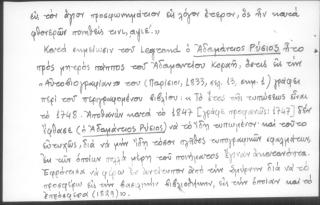 εἰς τὸν ἅγιον προσφωνημάτιον εἰς λόγον ἕτερον, ὃς ἦν κατὰ
φθονερῶν ποιηθεὶς τινι, ἀφιέ.»
Κατὰ σημείωσιν τοῦ Legrand ὁ Ἀδαμάντιος Ρύσιος ἦτο
πρὸς μητρὸς πάππος τοῦ Ἀδαμαντίου Κοραῆ, ὅστις εἰς τὴν
«Αὐτοβιογραφίαν» του (Παρίσιοι, 1833, σελ. 13, σημ. 1) γράφει
περὶ τοῦ περιγραφομένου βιβλίου: «Τὸ ἔτος τῆς τυπώσεως εἶναι
τὸ 1748. Ἀποθανὼν κατὰ τὸ 1847 [γράφε προφανῶς: 1747] δὲν
ἔφθασε (ὁ Ἀδαμάντιος Ρύσιος) νὰ τὸ ἴδῃ τυπωμένον· καὶ τοῦτο
εὐτυχῶς, διὰ νὰ μὴν ἴδῃ τόσον πλῆθος τυπογραφικῶν σφαλμάτων,
ἐκ τῶν ὁποίων πολλὰ μέρη τοῦ ποιήματος ἔγιναν ἀκατανόητα.
Ἐφρόντισα νὰ φέρω ἓν ἀντίτυπον ἀπὸ τὴν Σμύρνην διὰ νὰ τὸ
προσφέρω εἰς τὴν βασιλικὴν βιβλιοθήκην, εἰς τὴν ὁποίαν καὶ τὸ
ἐπρόσφερα (1829)».